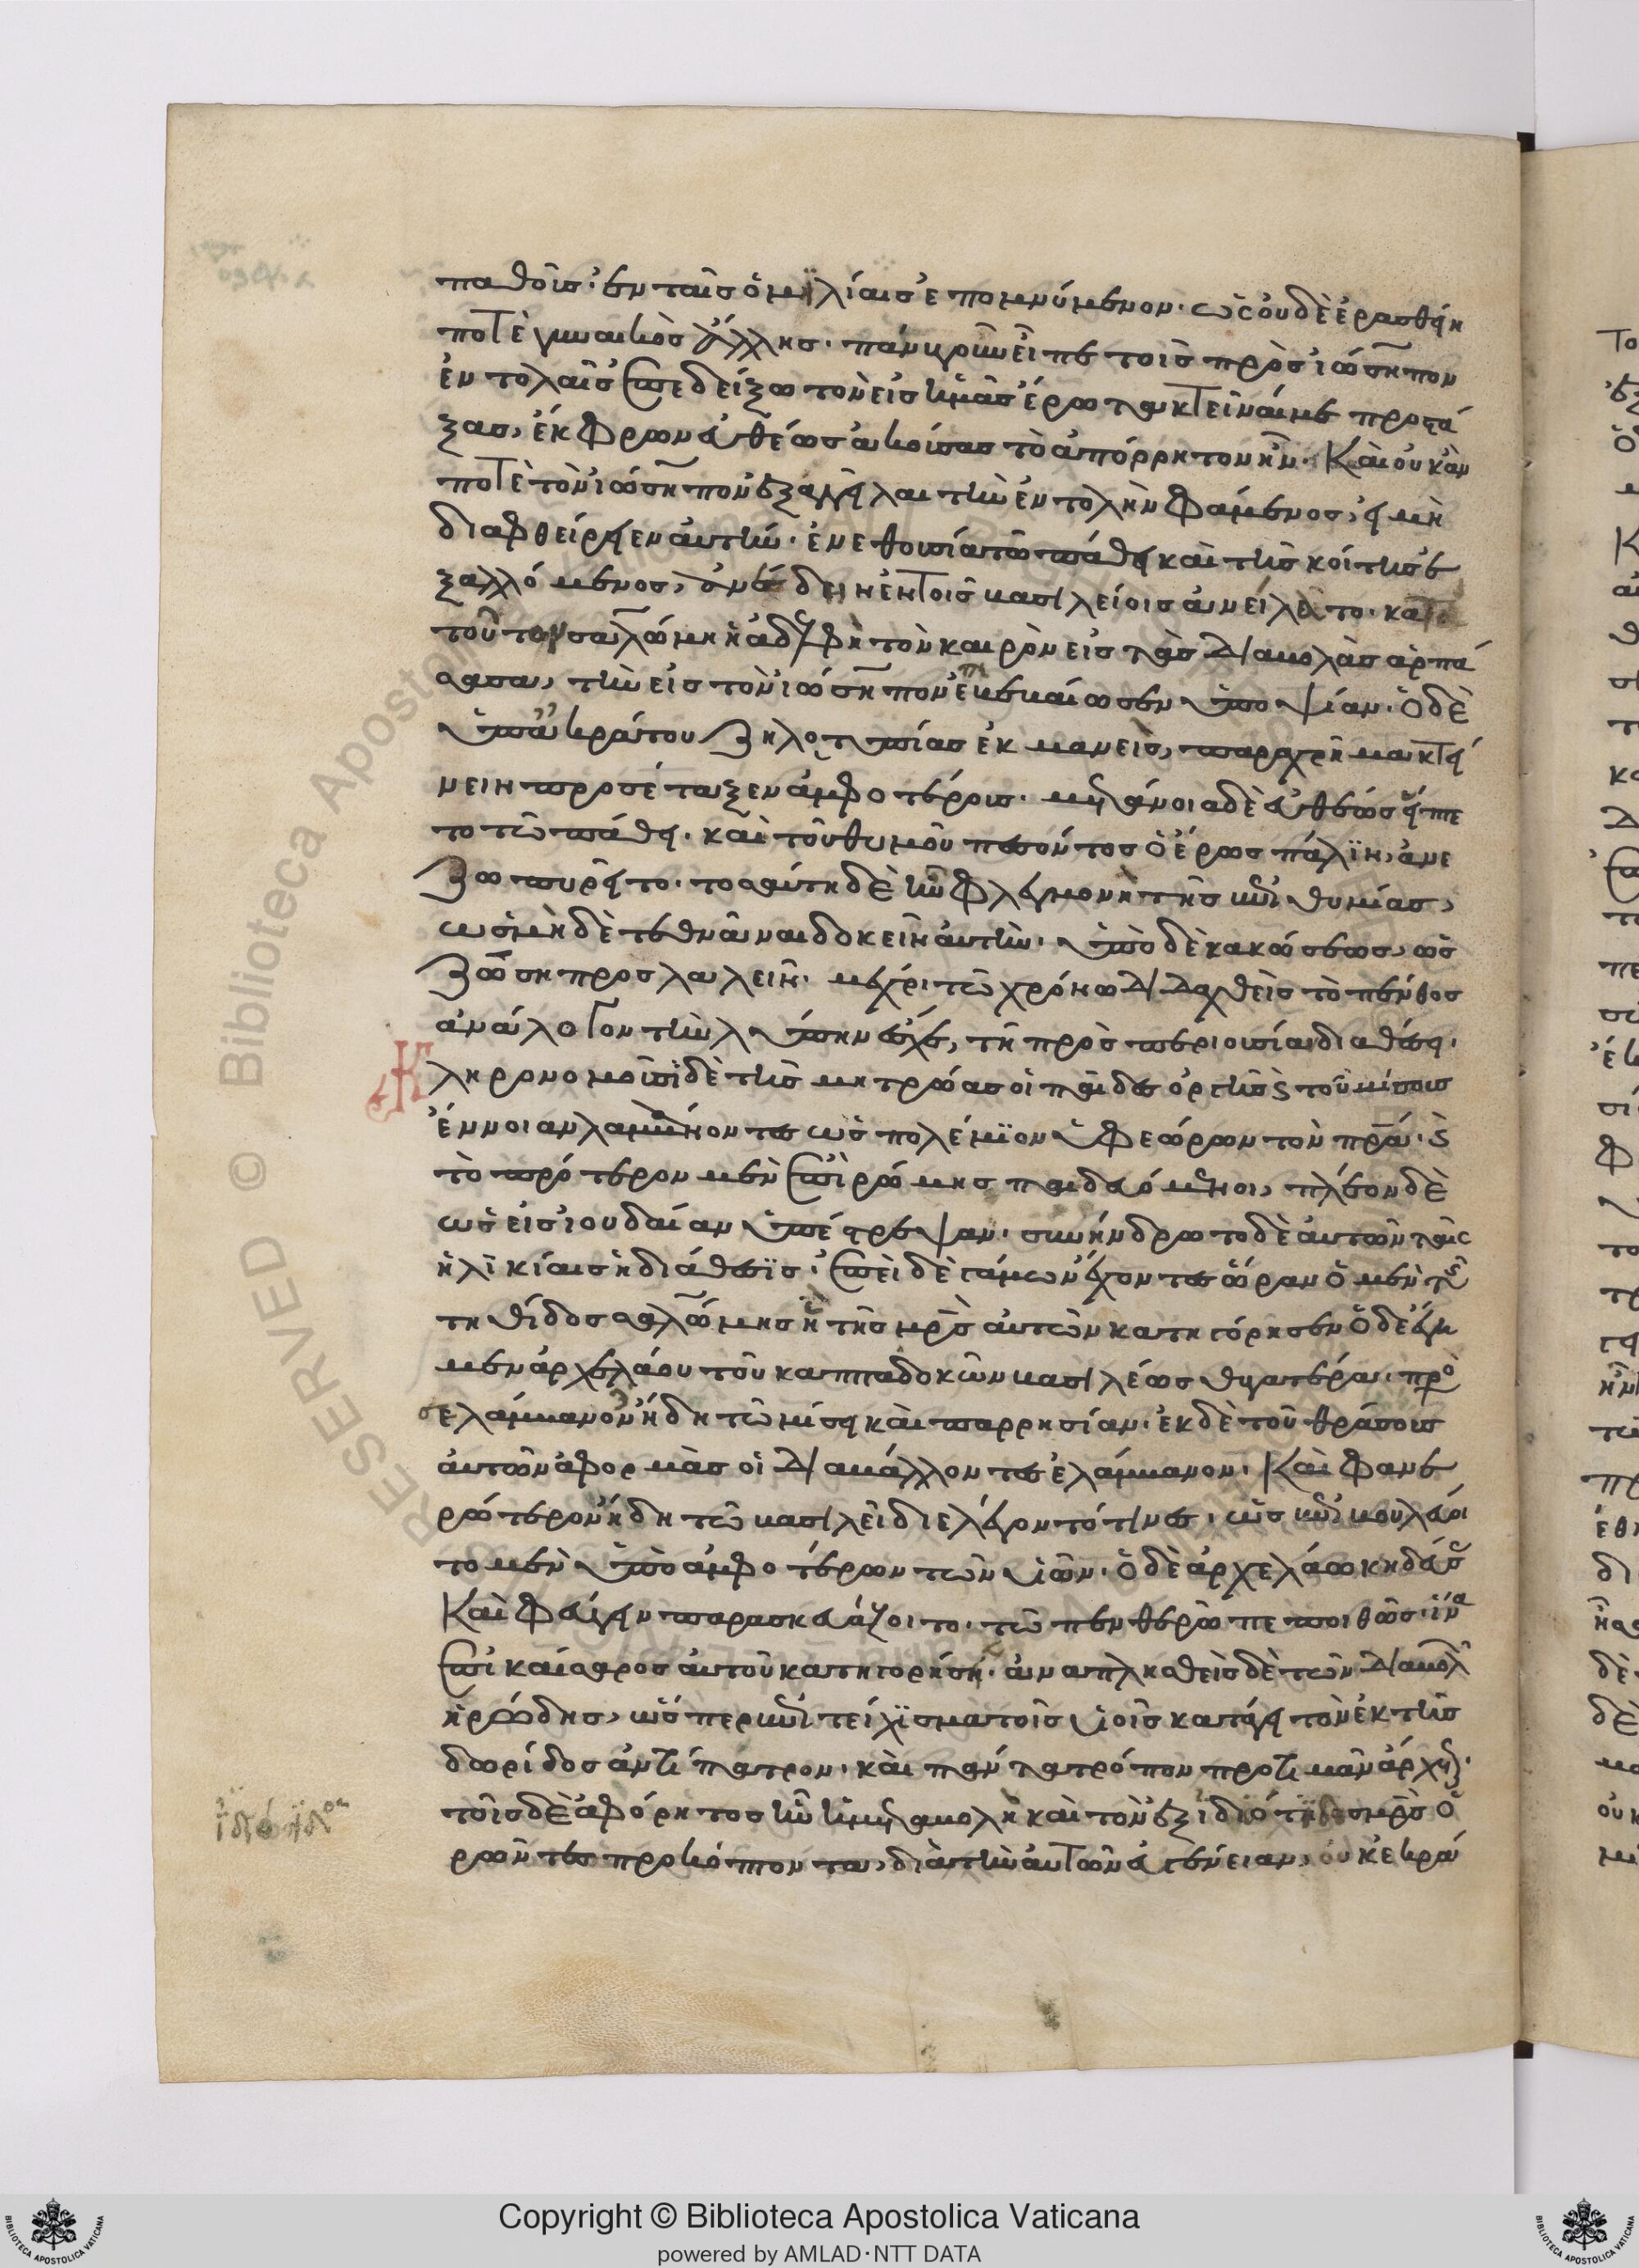 παθοῦς· ἐν ταῖς ὁμϊλίαις ἐπομνύμενον· ὡς οὐδὲ ἐρασθείη
ποτὲ γυναικὸς ἄλλης· πάνυ γοῦν εἶπε τοῖς πρὸς ἰώσηπον
ἐντολαῖς ἐπεδείξω τὸν εἰς ἡμᾶς ἔρωτα κτεῖναί με προστά
ξας, ἔκφρων εὐθέως ἀκούσας τὸ ἀπόρρητον ἦν· Καὶ οὐκ ἂν
ποτὲ τὸν ἰώσηπον ἐξαγγεῖλαι τὴν ἐντολὴν φάμενος, εἰ μὴ
διαφθείρειεν αὐτὴν· ἐνεθουσία τῶ πάθει καὶ τῆς κοίτης ἐ
ξαλλόμενος, ἀνέδην ἐν τοῖς βασιλείοις ἀνειλεῖτο· καὶ
τοῦτον σαλώμη ἡ ἀδελφὴ τὸν καιρὸν εἰς τὰς διαβολὰς ἁρπά
σασα, τὴν εἰς τὸν ἰώσηπον ἐπεβεβαίωσεν ὑποψίαν· ὁ δὲ
ὑπ' ἀκράτου ζηλοτυπίας ἐκμανεὶς, παραχρῆμα κτεί
νειν προσέταξεν ἀμφοτέρους· μετάνοια δὲ εὐθέως εἵπε
το τῶ πάθει· καὶ τοῦ θυμοῦ πεσόντος ὁ ἔρως πάλϊν, ἀνε
ζωπυρεῖτο· τοσαύτη δὲ ἦν φλεγμονὴ τῆς ἐπιθυμίας,
ὡς μηδὲ τεθνάναι δοκεῖν αὐτὴν· ὑπὸ δὲ κακώσεως, ὡς
ζώση προσλαλεῖν· μέχρι τῶ χρόνω διδαχθεὶς τὸ πένθος
ἀνάλογον τὴν λύπην ἔσχε, τῆ πρὸς περιοῦσαν διαθέσει·
Κληρονομοῦσι δὲ τῆς μητρώας οἱ παῖδες ὀργῆς καὶ τοῦ μίσους
ἔννοιαν λαμβάνοντες ὡς πολέμϊον ὑφεώρων τὸν πρα· καὶ
τὸ πρότερον μὲν ἐπὶ ρώμης παιδευόμενοι, πλέον δὲ
ὡς εἰς ἰουδαίαν ὑπέστρεψαν· συνηνδροῦτο δὲ αὐτῶν ταῖς
ἡλικίαις ἡ διάθεσϊς· ἐπεὶ δὲ γάμων ἔχοντες ὥραν ὁ μὲν τῆς
τηθίδος σαλώμης ἣ τῆς μρς αὐτῶν κατηγόρησεν ὁ δὲ ἔγη
μεν ἀρχελάου τοῦ καππαδοκῶν βασιλέως θυγατέρα· προ
σελάμβανον ἤδη τῶ μίσει καὶ παρρησίαν· ἐκ δὲ τοῦ θράσους
αὐτῶν ἀφορμὰς οἱ διαβάλλοντες ἐλάμβανον· Καὶ φανε
ρώτερον ἤδη τῶ βασιλεῖ διελέγοντό τινες, ὡς ἐπιβουλεύοι
το μὲν ὑπὸ ἀμφοτέρων τῶν υἱῶν· ὁ δὲ ἀρχελάω κηδεύσας
Καὶ φεύγειν παρασκευάζοιτο· τῶ πενθερῶ πεποιθὼς· ἵνα
ἐπὶ καίσαρος αὐτοῦ κατηγορήση· ἀναπλησθεὶς δὲ τῶν διαβολῶν
ἡρώδης, ὥσπερ ἐπιτείχϊσμα τοῖς υἱοῖς κατάγει τὸν ἐκ τῆς
δωρίδος ἀντίπατρον· καὶ πάντα τρόπον προτιμᾶν ἄρχεται·
τοῖς δὲ ἀφόρητος ἦν ἡ μεταβολὴ καὶ τὸν ἐξ ἰδιώτϊδος μρς ὁ
ρῶντες προκόπτοντα, διὰ τὴν αὐτῶν εὐγένειαν, οὐκ ἐκρά